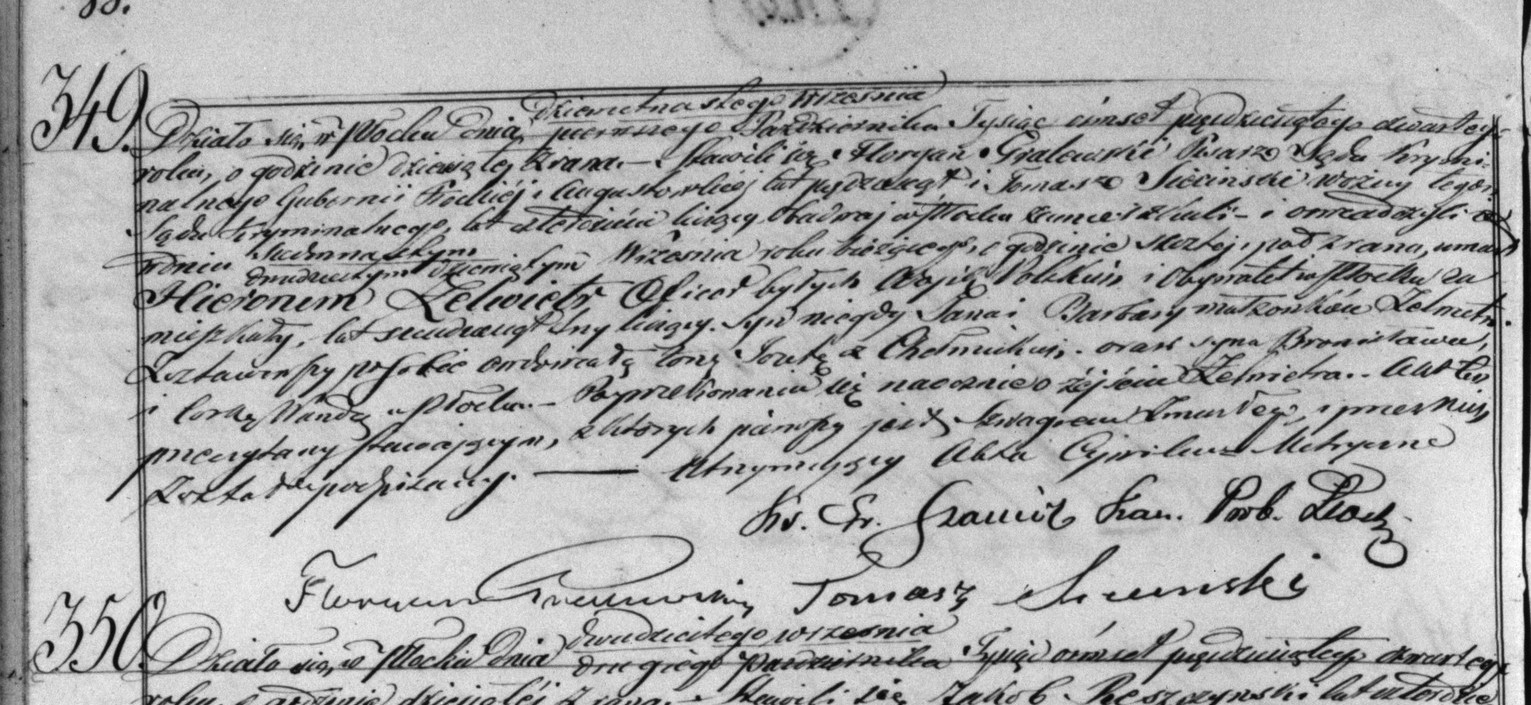 349.
Dziewiętnastego Września
Działo się w Płocku dnia pierwszego Października Tysiąc ośmset pięćdziesiątego czwartego
roku, o godzinie dziewiątej zrana. – Stawili się Floryan Gralewski Pisarz Sądu Krymi-
nalnego Gubernii Płockiej i Augustowskiej lat pięćdziesiąt i Tomasz Sieciński woźny tegoż
Sądu Kryminalnego, lat liczący obadwaj w Płocku zamieszkali – i oświadczyli iż
w dniu siedmnastym
dwudziestym dziewiątym Września roku bieżącego, o godzinie szóstej i pół zrana, umarł
Hieronim Zelwietr Oficer byłych Wojsk Polskich i Obywatel w Płocku za
mieszkały, lat siedmdziesiąt trzy liczący. Syn niegdy Jana i Barbary małżonków Zelwietr.
Zostawiwszy po sobie owdowiałą żonę Józefę z Chełmickich. oraz syna Bronisława,
i Córkę Wandę w Płocku. – Po przekonaniu się naocznie o zejściu Zelwietra. – Akt ten
przeczytany stawającym, z których pierwszy jest Szwagrem Zmarłego, i przez nich
został podpisany. — Utrzymujący Akta Cywilne Metryczne
Ks. Fr. Kan. Prob. Płock.
Floryan Gralewski Tomasz Sieciński
350.
dwudziestego września
Działo się w Płocku dnia drugiego Października Tysiąc ośmset pięćdziesiątego czwartego
roku, o godzinie dziewiątej z rana. – Stawili się Jakób